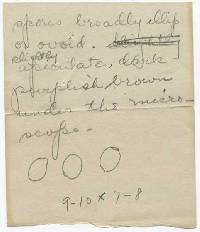 spores broadly ellip
or ovoid.
slightly
apiculate, dark
purplish brown
under the micro-
scope-
9-10 x 7-8